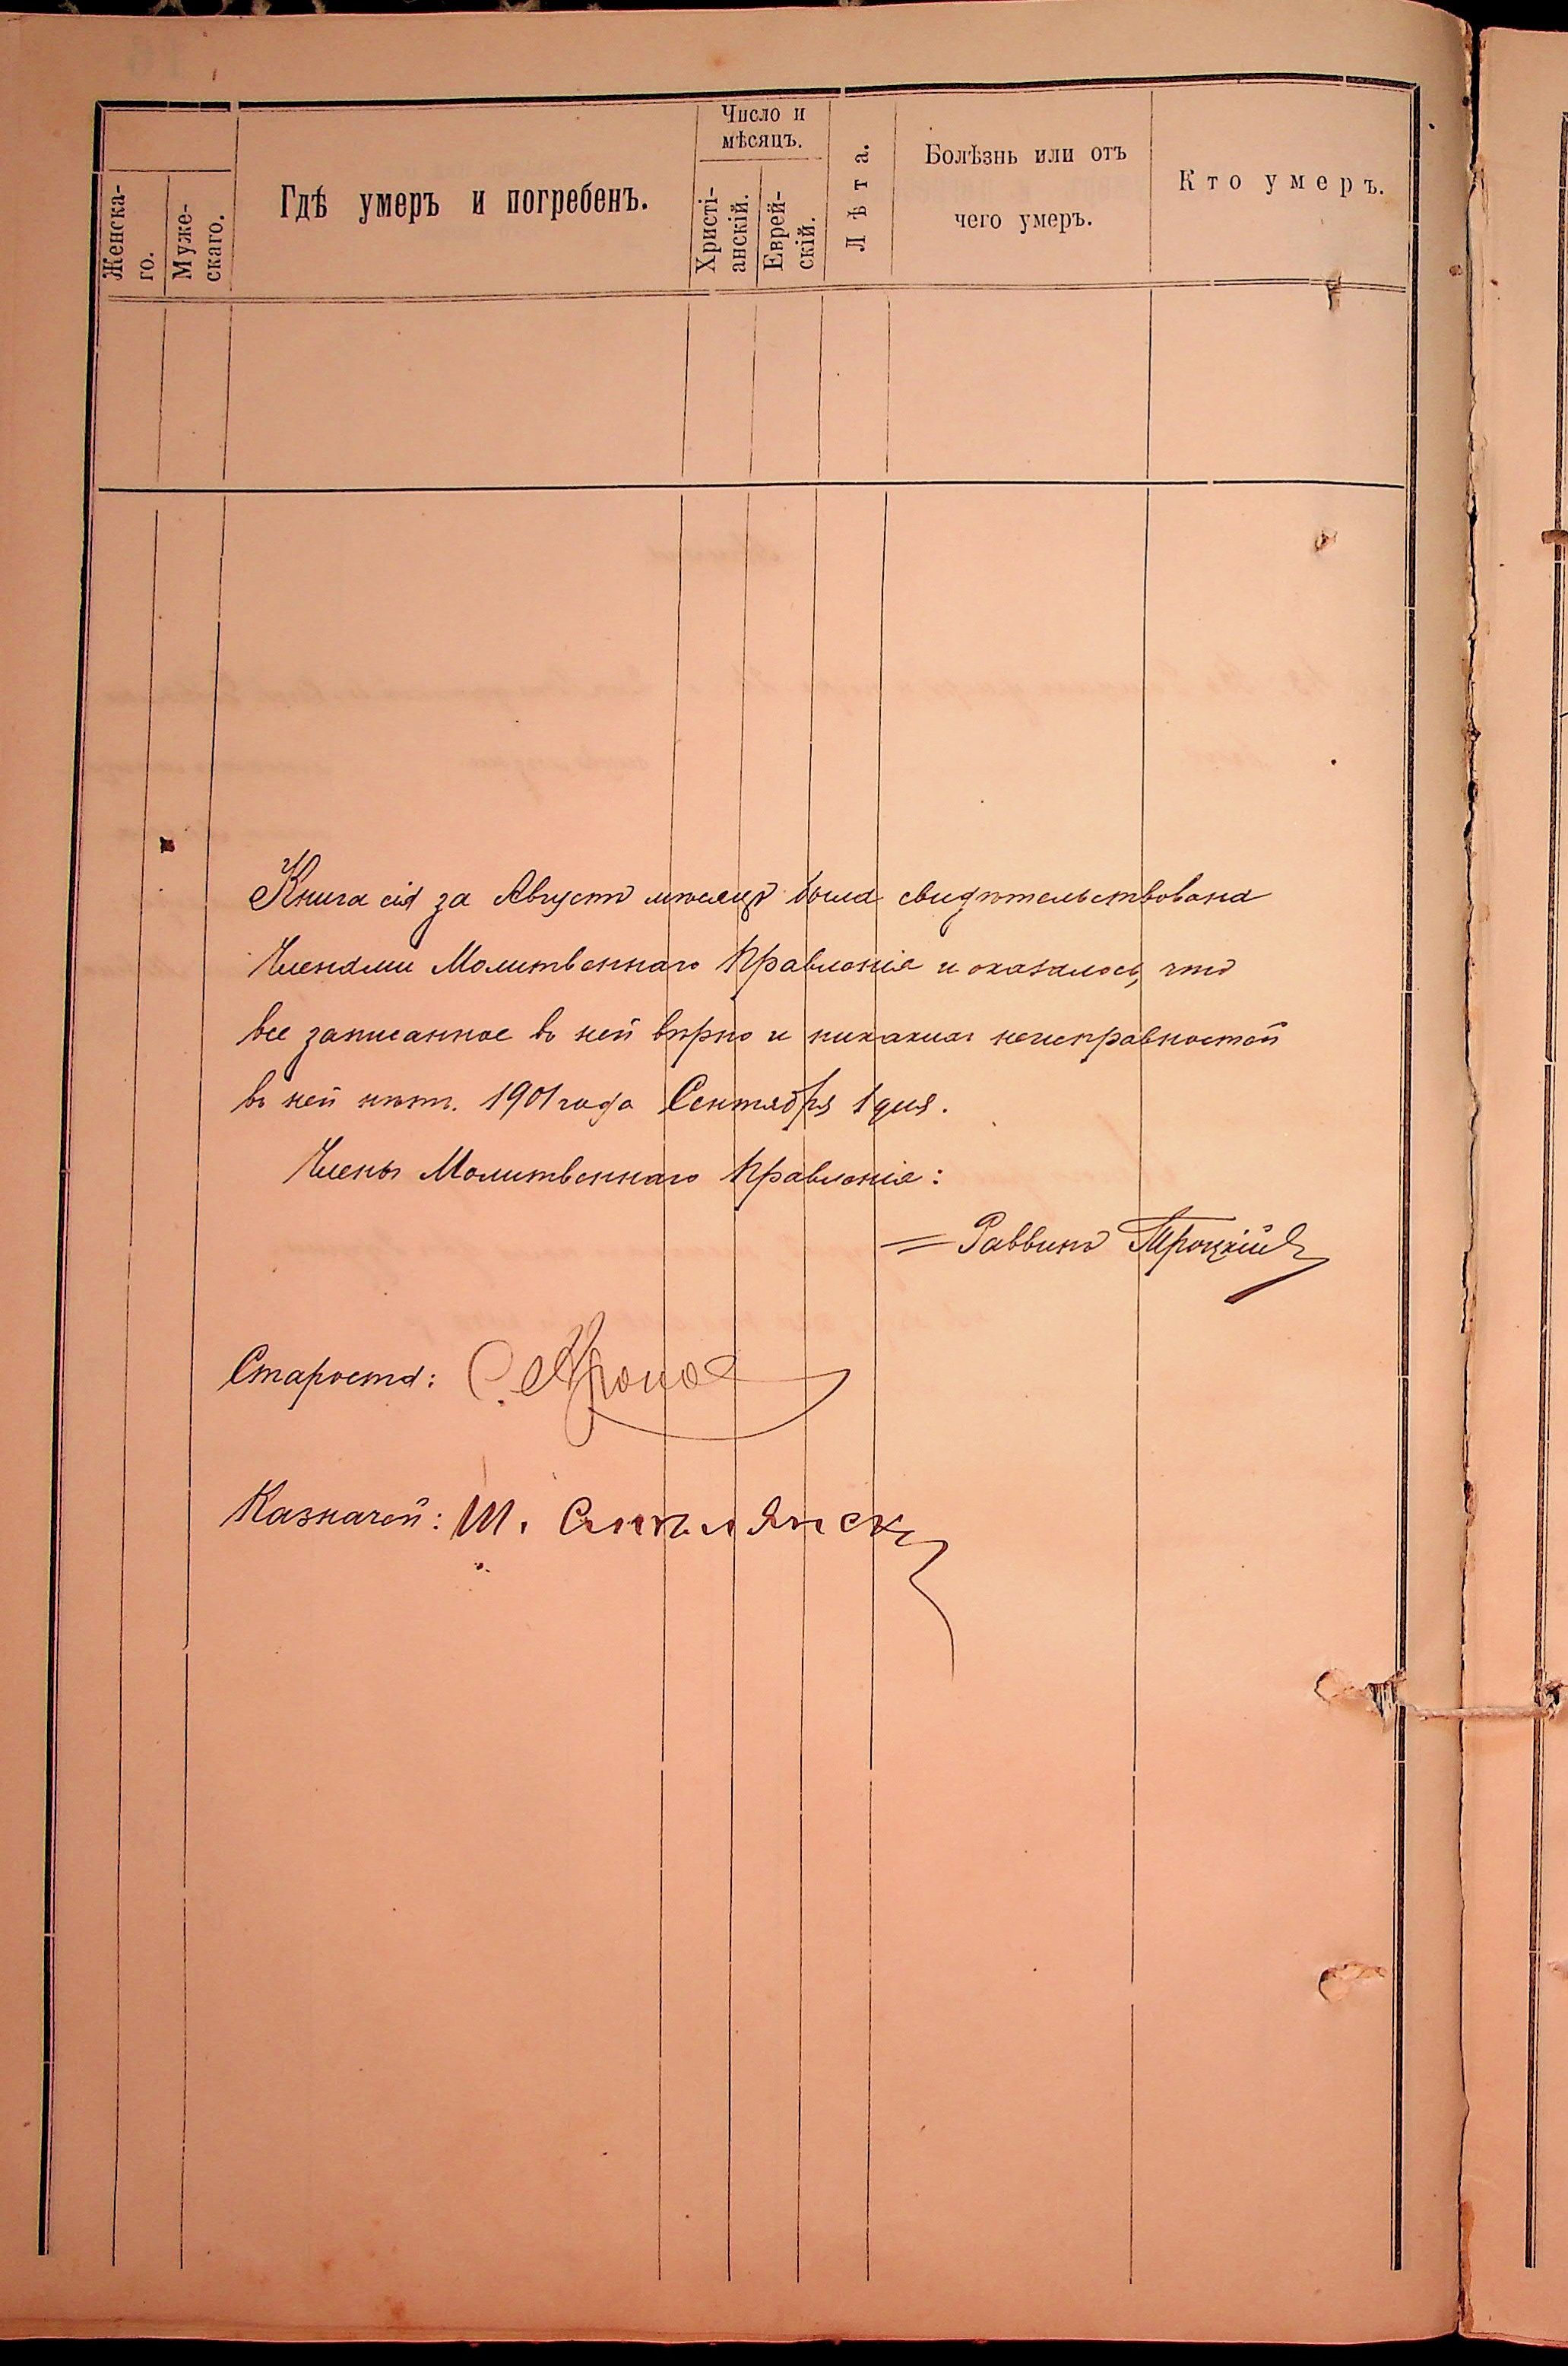 Число и
мѣсяцъ.
Женска-
го.
Муже-
скаго.
Гдѣ умеръ и погребенъ.
Христі-
анскій.
Еврей-
скій.
Лѣта.
Болѣзнь или отъ
чего умеръ.
Кто умеръ.
Книга сія за Августъ мѣсяцъ была свидѣтельствована
Членами Молитвеннаго Правленія и оказалось, что
все записанное въ ней вѣрно и никакихъ неисправностей
въ ней нѣтъ. 1901 года Сентября 1 дня.
Члены Молитвеннаго Правленія:
Раввинъ Троцкій
Староста: С.
Казначей: Ш.